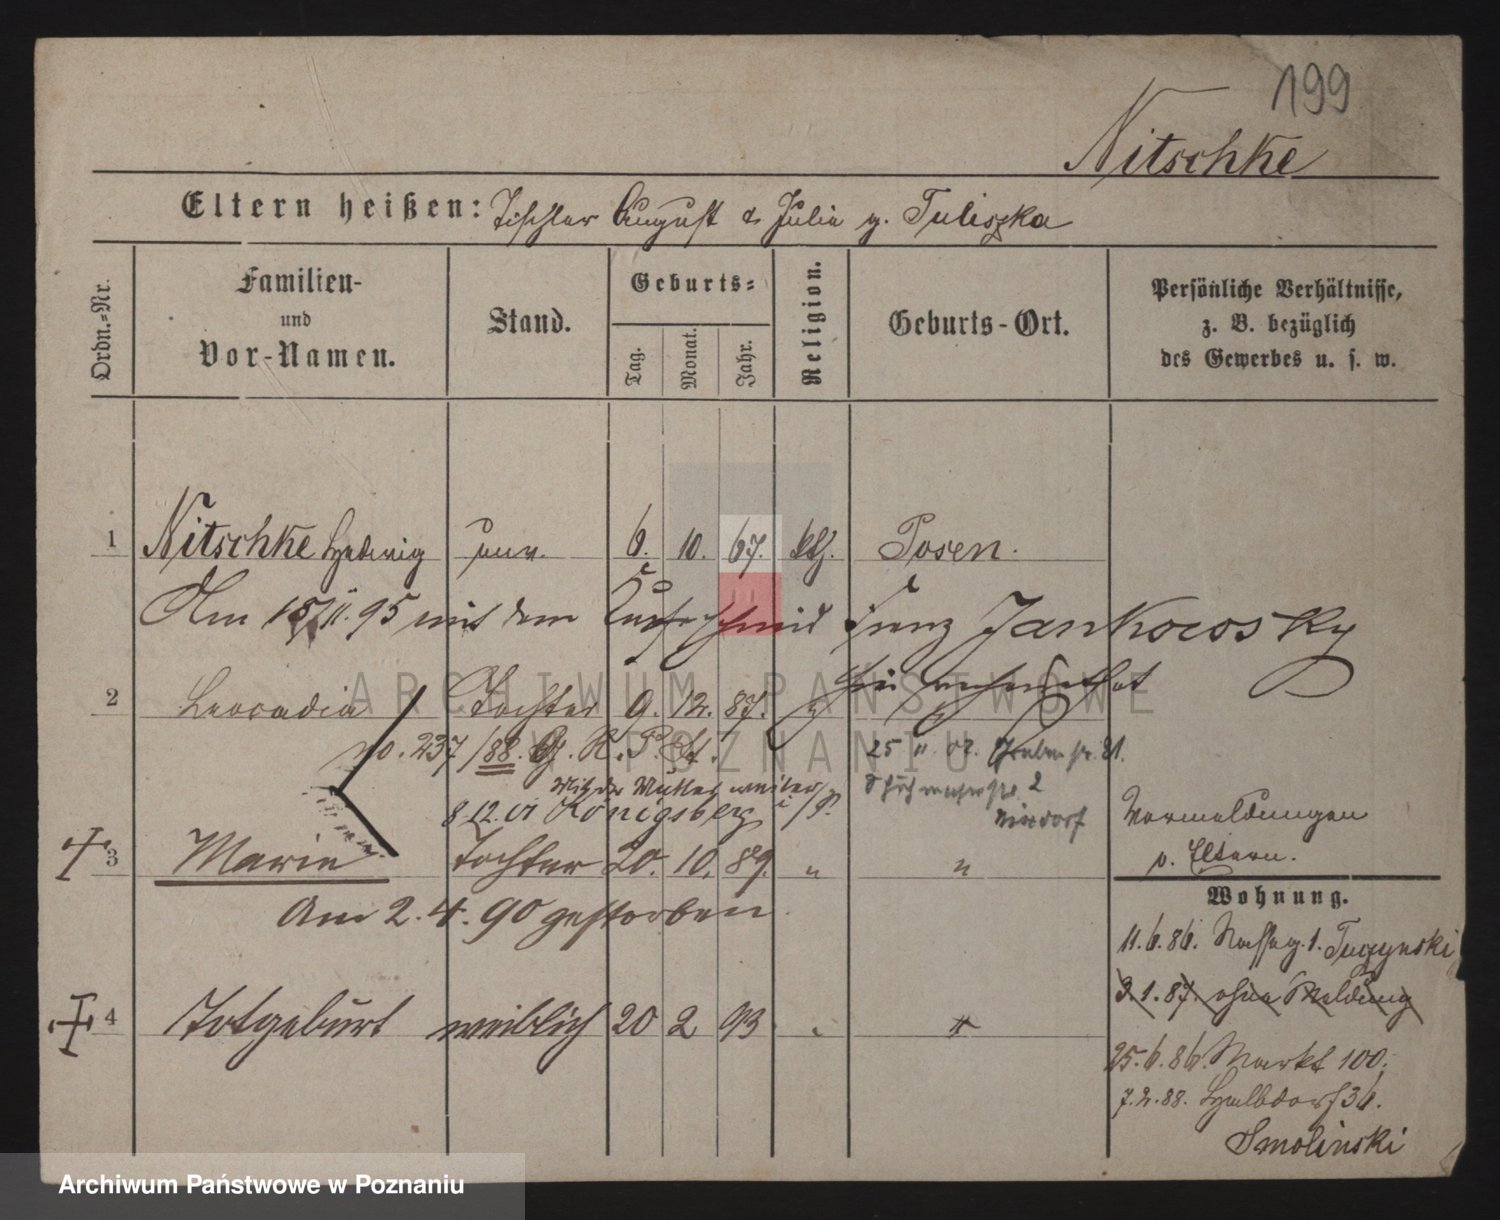 199
Nitschke
Eltern heißen: Tischler August & Julia g. Tuliszka
Ordn.-Nr.
Familien-
und
Vor-Namen.
Stand.
Geburts-
Tag.
Monat.
Jahr.
Religion.
Geburts-Ort.
Persönliche Verhältnisse,
z. B. bezüglich
des Gewerbes u. s. w.
1 Nitschke Hedwig unv. 6. 10. 67. kth. Posen.
Am 15/11. 95 mit dem Kupferschmid Franz Jankowosky
hier verheirathet
2 Leocadia Tochter 9. 12. 87.
no. 237/88. G. R. P. St.
25 11. 07. Grabenstr. 21.
Mit der Mutter weiter
8.12. 01 Königsberg i/P.
2
3 Marie Tochter 20. 10. 89. " "
Am 2. 4. 90 gestorben
4 Totgeburt weiblich 20 2 93
Vermeldungen
v. Eltern.
Wohnung.
11.6.86. Nasseg. 1. Tuczynski
3.1.87. ohne Meldung
25.6.86. Markt 100.
7.2.88. Halbdorf 36.
Smolinski
ARCHIWUM PAŃSTWOWE
W POZNANIU
Archiwum Państwowe w Poznaniu